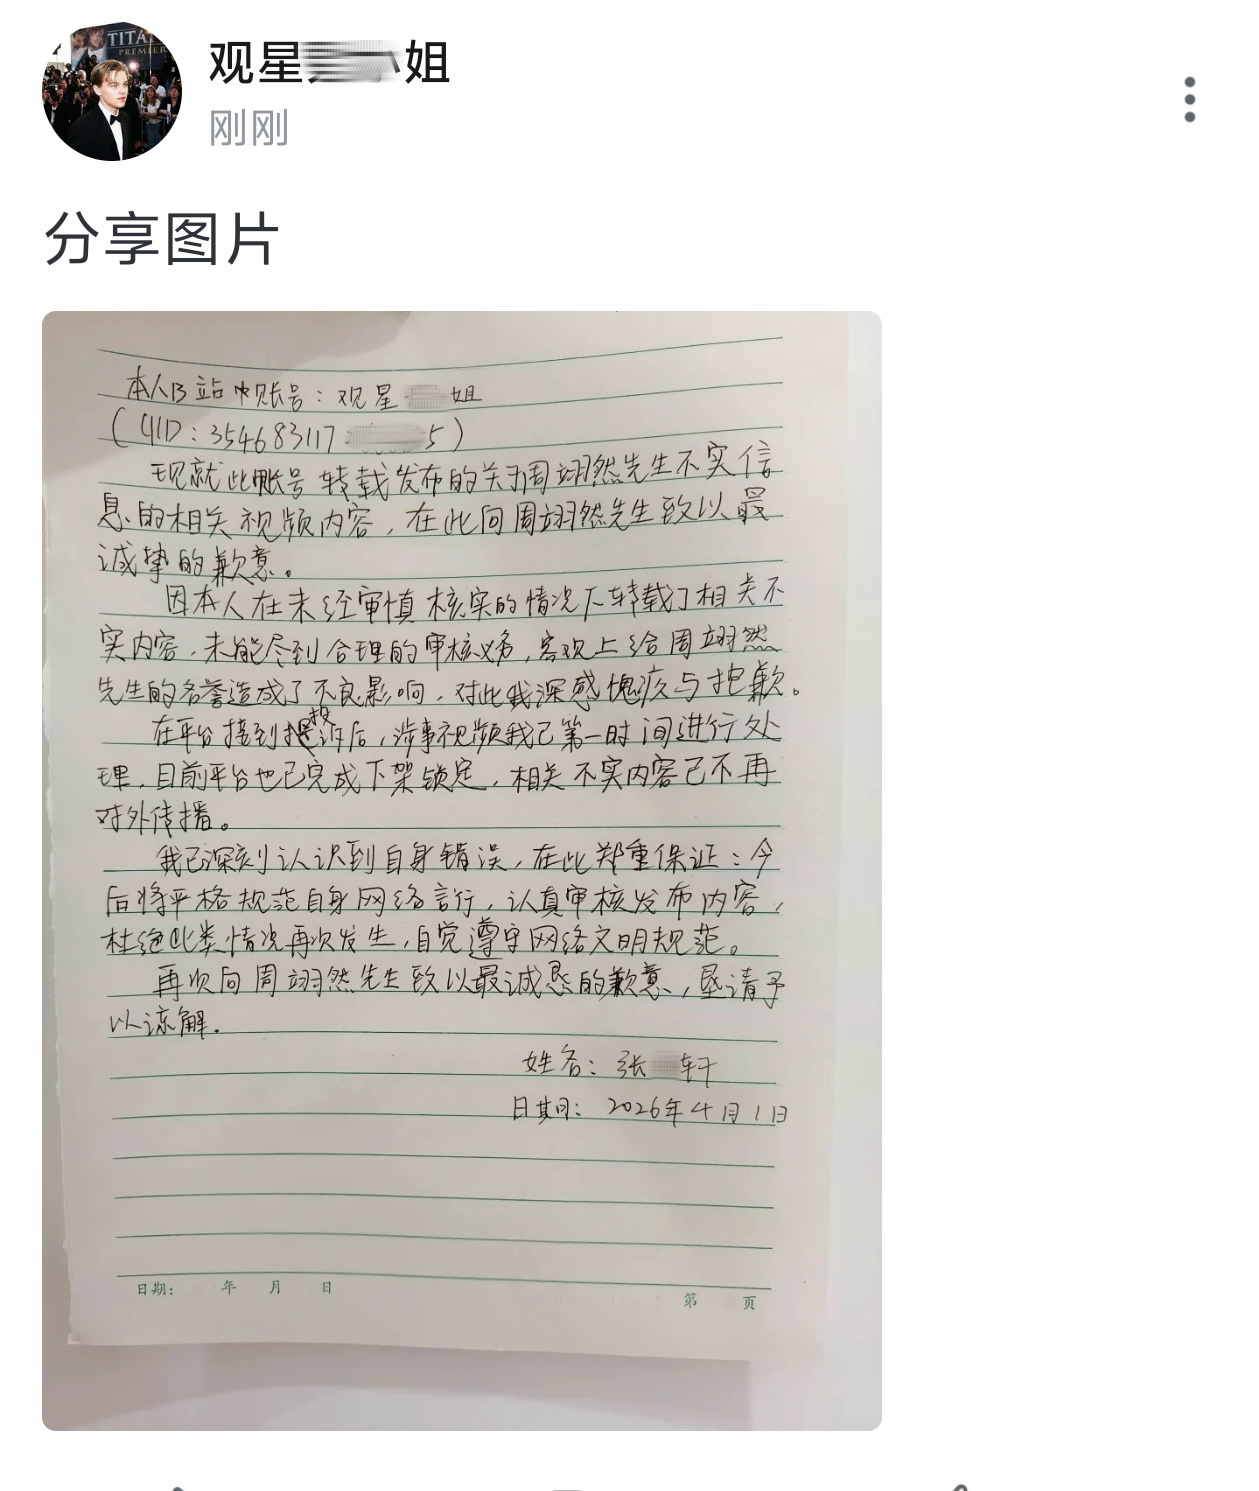 TITA
PREMIER
观星 姐
刚刚
分享图片
本人B站中账号：观星 姐
（UID：354683117 5）
现就此账号转载发布的关于周翊然先生不实信
息的相关视频内容，在此向周翊然先生致以最
诚挚的歉意。
因本人在未经审慎核实的情况下转载了相关不
实内容，未能尽到合理的审核义务，客观上给周翊然
先生的名誉造成了不良影响，对此我深感愧疚与抱歉。
在平台接到投诉后，涉事视频我已第一时间进行处
理，目前平台也已完成下架锁定，相关不实内容已不再
对外传播。
我已深刻认识到自身错误，在此郑重保证：今
后将严格规范自身网络言行，认真审核发布内容，
杜绝此类情况再次发生，自觉遵守网络文明规范。
再次向周翊然先生致以最诚恳的歉意，恳请予
以谅解。
姓名：张 轩
日期：2026年4月1日
日期： 年 月 日
第 页